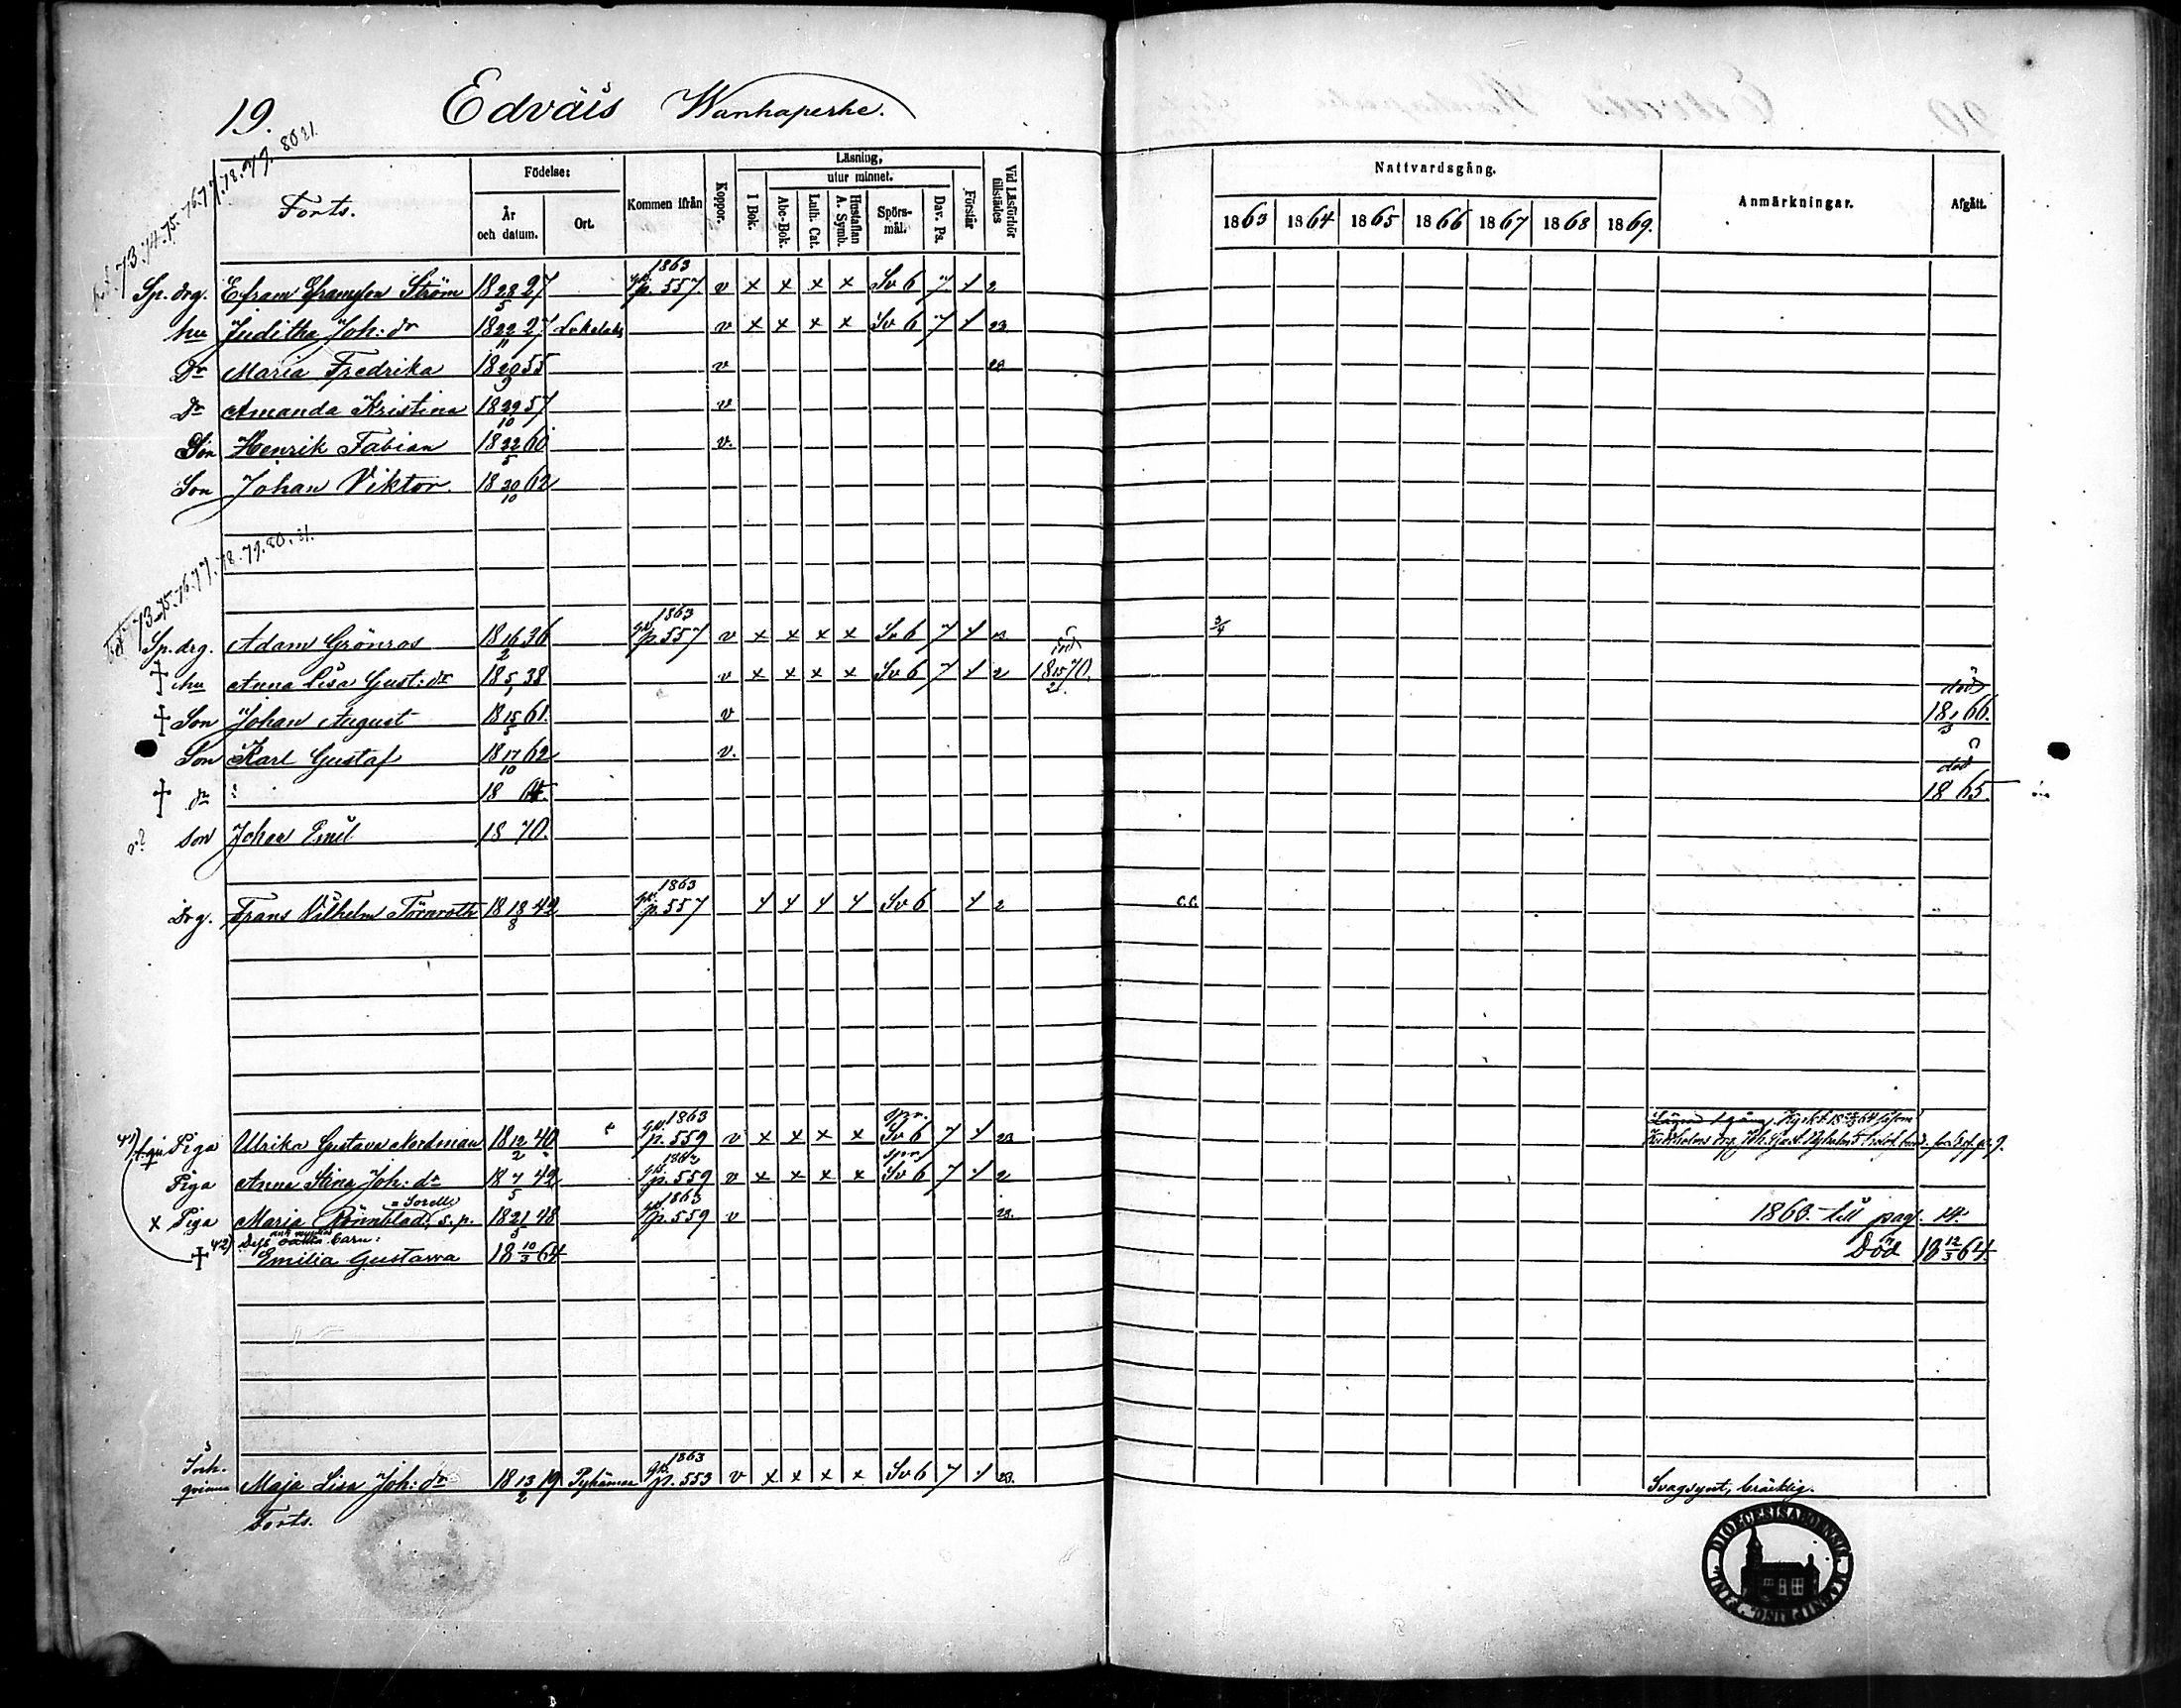 19. Edväis Wanhaperhe.
Forts.
Födelse:
År och datum.
Ort.
Kommen ifrån
Koppor.
Läsning,
utur minnet.
I Bok.
Abc-Bok.
Luth. Cat.
Hustaflan A. Symb.
Spörs-mål.
Dav. Ps.
Förstår
Vid Läsförhör tillstädes
Nattvardsgång.
1863 1864 1865 1866 1867 1868 1869.
Anmärkningar.
Afgått.
73.74.75.76.77.78.79.80 21.
Sp. drg. Efram Eframsson Ström 18 22/5 27 1863 p. 557 v x x x x Sv 6 7 1 2
hu Juditha Joh: dr 18 22/11 27 Lokalaks v x x x x Sv 6 7 1 23.
Dr Maria Fredrika 18 20/9 55 v 23
Dr Amanda Kristina 18 29/10 57 v
Son Henrik Fabian 18 22/5 60 v.
Son Johan Viktor. 18 20/10 62
73.75.76.77.78.79.80.21.
Sp. drg. Adam Grönros 18 16/2 36 1863 p. 557 v x x x x Sv 6 7 1 3/4
† hu Anna Lisa Gust: dr 18 5/1 38 v x x x x Sv 6 7 1 2 död 18 15/21 70.
† Son Johan August 18 15/5 61. v död 18 1/3 66.
Son Karl Gustaf 18 17/10 62 v.
† dr 18 64. död 18 65.
son Johan Emil 18 70.
Drg. Frans Vilhelm Törnroth 18 18/8 42 1863 p. 557 4 4 4 4 Sv 6 1 2 c.c.
41) Piga Ulrika Gustava Nordman 18 12/2 40 1863 p. 559 v x x x x Sv 6 7 1 23
Piga Anna Stina Joh: dr 18 7/5 42 1863 p. 559 v x x x x Sv 6 7 1 2
x Piga Maria Rönnblad, s. p. 18 21/5 48 1863 p. 559 v 23. 1863. till pag. 14.
42) Dess oäkta barn:
† Emilia Gustava 18 10/3 64 Död 18 12/3 64.
Inh. qvinna Maja Lisa Joh: dr 18 13/2 19 Pyhämaa 1863 p. 553 v x x x x Sv 6 7 1 23. Svagsynt, bräcklig.
Forts.
DIOECESIS ABOENSIS